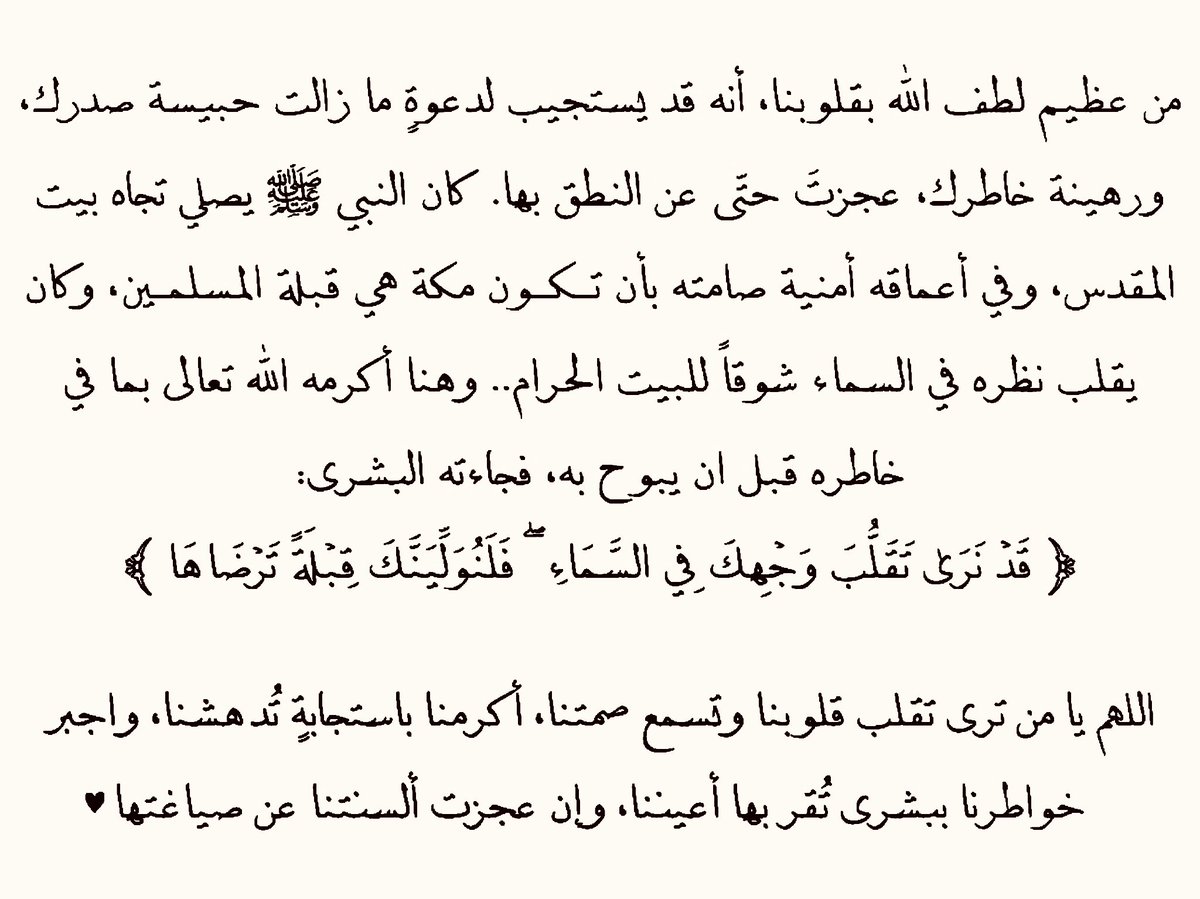 من عظيم لطف الله بقلوبنا، أنه قد يستجيب لدعوةٍ ما زالت حبيسة صدرك،
ورهينة خاطرك، عجزتَ حتَّى عن النطق بها. كان النبي ﷺ يصلي تجاه بيت
المقدس، وفي أعماقه أمنية صامته بأن تـكـون مكة هي قبلة المسلمـين، وكان
يقلب نظره في السماء شوقاً للبيت الحرام.. وهنا أكرمه الله تعالى بما في
خاطره قبل ان يبوح به، فجاءته البشرى:
﴿ قَدْ نَرَىٰ تَقَلُّبَ وَجْهِكَ فِي السَّمَاءِ ۖ فَلَنُوَلِّيَنَّكَ قِبْلَةً تَرْضَاهَا ﴾
اللهم يا من ترى تقلب قلوبنا وتسمع صمتنا، أكرمنا باستجابةٍ تُدهشنا، واجبر
خواطرنا ببشرى تُقر بها أعيننا، وإن عجزت ألسنتنا عن صياغتها ♥